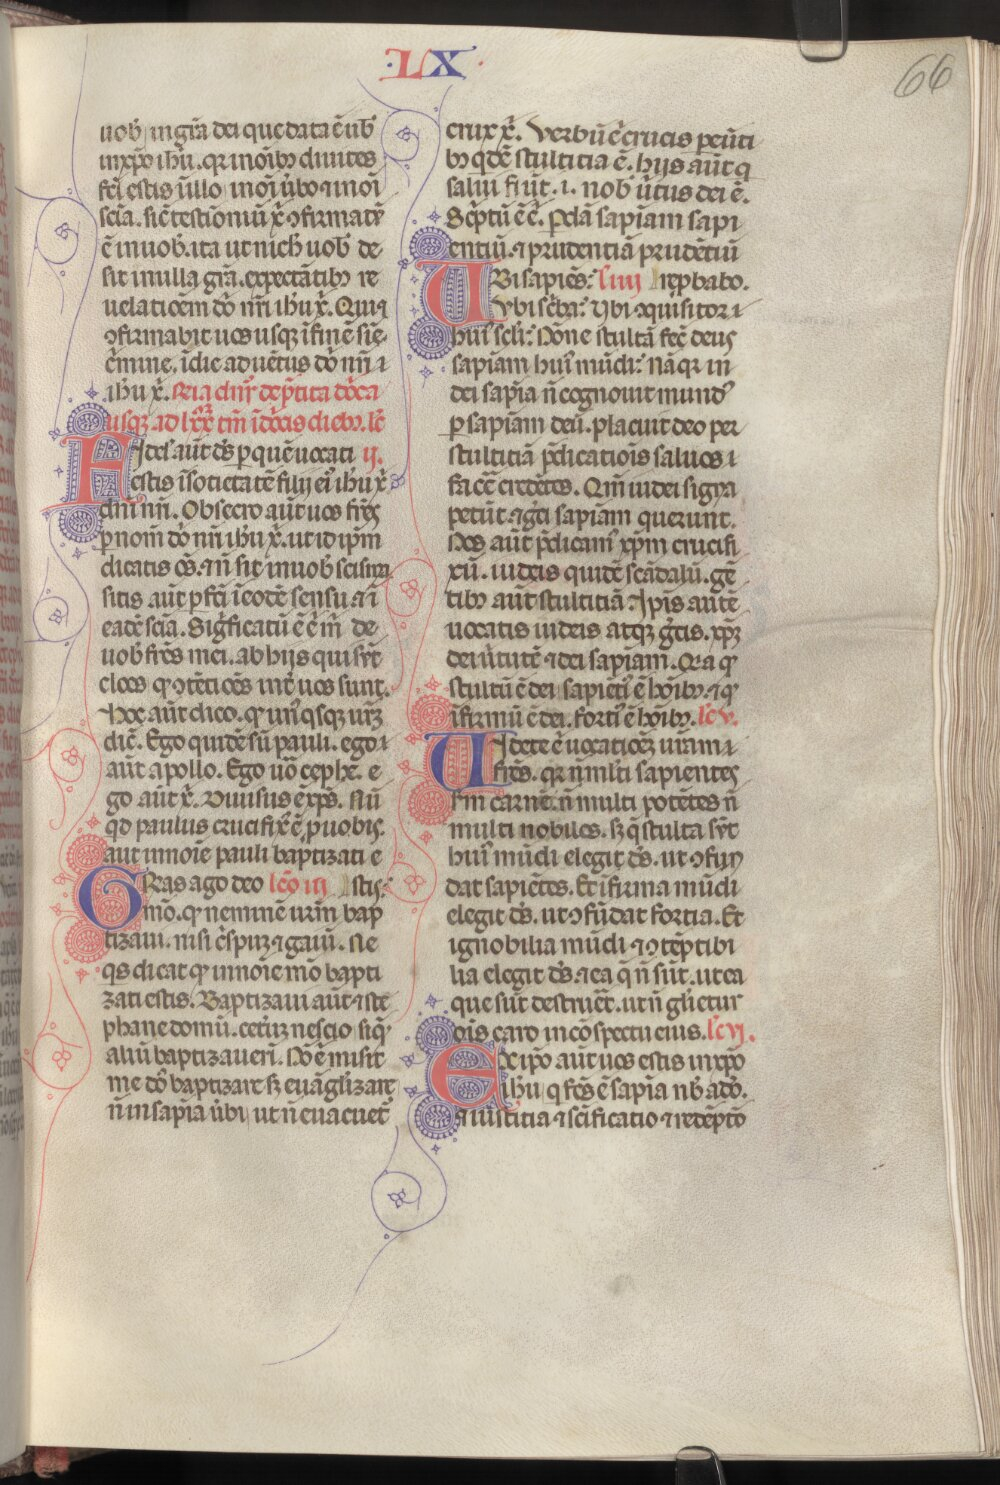 LX
66
uob̄ in gr̄a dei que data ē uob̄
in xp̄o ih̄u. qr in oīb⁊ diuites
fc̄i estis ī illo in oī ūbo ⁊ in oī
sc̄ia. sic̄ testimoniū x̄ ꝯfirmatū
ē in uob̄. ita ut nichͥ uob̄ de-
sit in ulla gr̄a. expectātib⁊ re
uelatiōem dn̄i nr̄i ih̄u x̄. Qui ⁊
ꝯfirmabit uos usq⁊ ī finē sine
c̄mine. ī die aduētus dn̄i nr̄i
ih̄u x̄.
usq⁊ ad lxx
Fidel̓ aūt ds̄ p quē uocati ij.
estis ī sotietatē filij ei⁹ ih̄u x̄
dn̄i nr̄i. Obsecro aūt uos fr̄es
p nom̄ dn̄i nr̄i ih̄u x̄. ut id ip̄m
dicatis oēs. ⁊ n̄ sit in uob̄ scisma
sitis aūt pfc̄i ī eodē sensu ⁊ ī
eadē sc̄ia. Significatū ē ē m̄ de
uob̄ fr̄es mei. ab hijs qui sūt
cloes qꝫ ꝯtētiōes int̄ uos sunt.
Hoc aūt dico. qꝫ un⁹ qsq⁊ ur̄m
dic̄. Ego quidē sū pauli. ego
aūt apollo. Ego uō cephe. e
go aūt x̄. Diuisus ē xp̄s. Nū
qd paulus crucifix⁹ ē p uobis.
aut in noīe pauli baptizati e
Gras ago deo lc̄o iij stis:
mō. qꝫ neminē ur̄m bap
tizaui. nisi c̄spū ⁊ gaiū. Ne
qs dicat qꝫ in noīe mō bapti
zati estis. Baptizaui aūt ⁊ ste
phane domū. cet̄ū nescio siq̄
aliū baptizauerī. Nō ē misit
me x̄ baptizare s⁊ euāglizare
n̄ in sapīa ūbi ut n̄ euacuet̄
crux x̄. Verbū ē crucis peūti
b⁊ qdē stultitia ē. hijs aūt q
salui fiūt. i. nob̄ uirtus dei ē.
Sc̄ptū ē ē. Pdā sapīam sapi
entiū. ⁊ prudentiā prudētiū
Ubi sapiēs: lc̄ iiij repbabo.
Vbi sc̄ba: Vbi ꝯquisitor
hui⁹ sc̄li: Nōne stultā fec̄ deus
sapīam hui⁹ mūdi: Nā qr in
dei sapīa n̄ cognouit mund⁹
p sapīam deū. placuit deo per
stultitiā p̄dicatiōis saluos
facē credētes. Qm̄ iudei signa
petūt ⁊ gc̄i sapīam querunt.
Nos aūt p̄dicam⁹ xp̄m crucifi
xū. iudeis quidē scādalū. gē
tib⁊ aūt stultitiā. Ip̄is autē
uocatis iudeis atq⁊ gc̄is. xp̄m
dei ūtutē ⁊ dei sapīam. Qia qꝫ
stultū ē dei sapiēti⁹ ē hoīb⁊. ⁊ qꝫ
īfirmū ē dei. forti⁹ ē hoīb⁊. lc̄ v.
Uidete ē uocatiōem ur̄am
fr̄es. qr n̄ ml̄ti sapientes
scd̄m carnē. n̄ multi potētes n̄
multi nobiles. s⁊ q̄ stulta sūt
hui⁹ mūdi elegit ds̄. ut ꝯfun
dat sapiētes. Et īfirma mūdi
elegit ds̄. ut ꝯfūdat fortia. Et
ignobilia mūdi ⁊ ꝯtēptibi
lia elegit ds̄ ⁊ ea q̄ n̄ sūt. ut ea
que sūt destruēt. ut n̄ gl̄ietur
oīs caro in cōspectu eius. lc̄ vj.
Ex ip̄o aūt uos estis in xp̄o
ih̄u q fc̄s ē sapīa nb̄ a dō.
⁊ iustitia ⁊ sc̄ificatio ⁊ redēptō